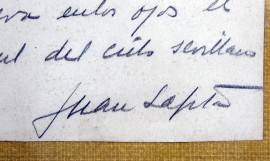 en los ojos el
del cielo sevillano
Juan Lafita